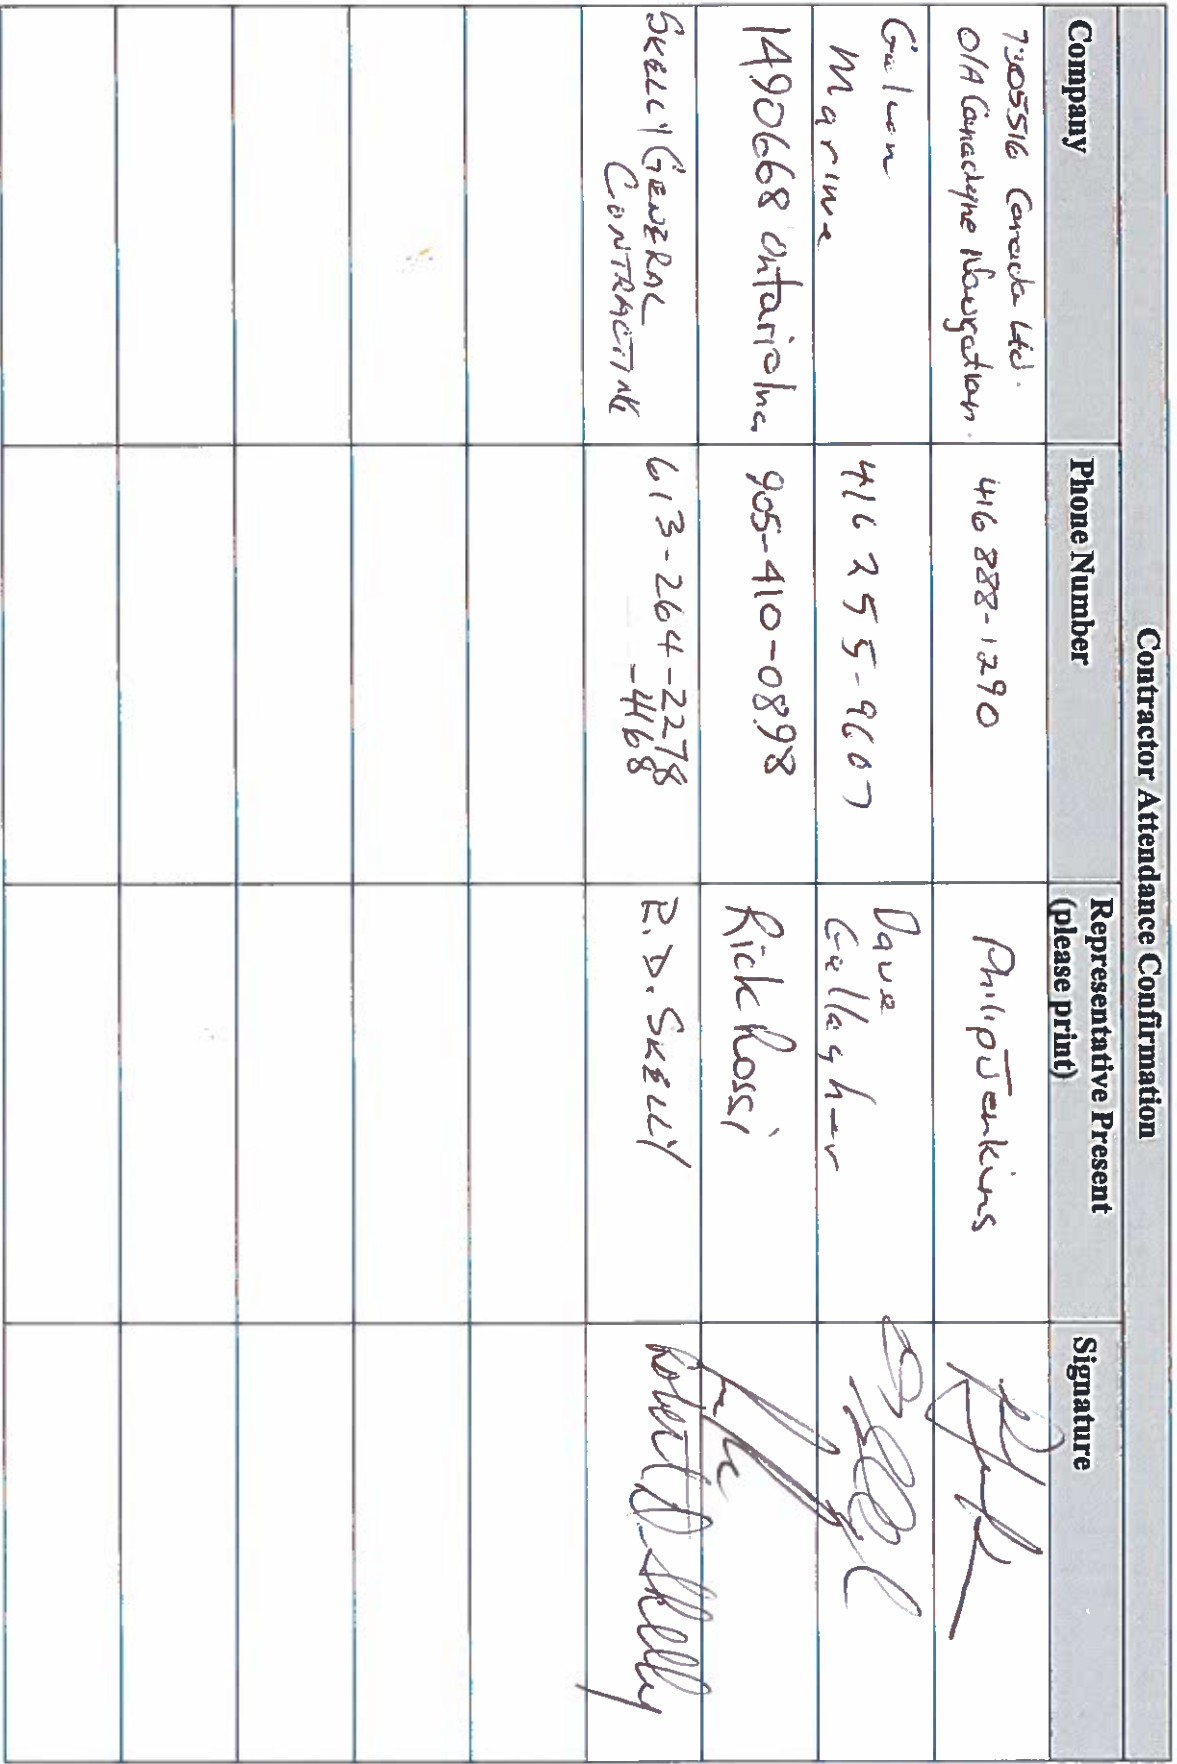 Contractor Attendance Confirmation
Company
Phone Number
Representative Present
(please print)
Signature
7305516 Canada Ltd.
O/A Canadyne Navigation.
416 888-1290
Philip Jenkins
Galcon
Marine
416 255-9607
Dave
Gallagher
1490668 Ontario Inc.
905-410-0898
Rick Rossi
SKELLY GENERAL
CONTRACTING
613-264-2278
-4168
R.D. SKELLY
Robert D Skelly